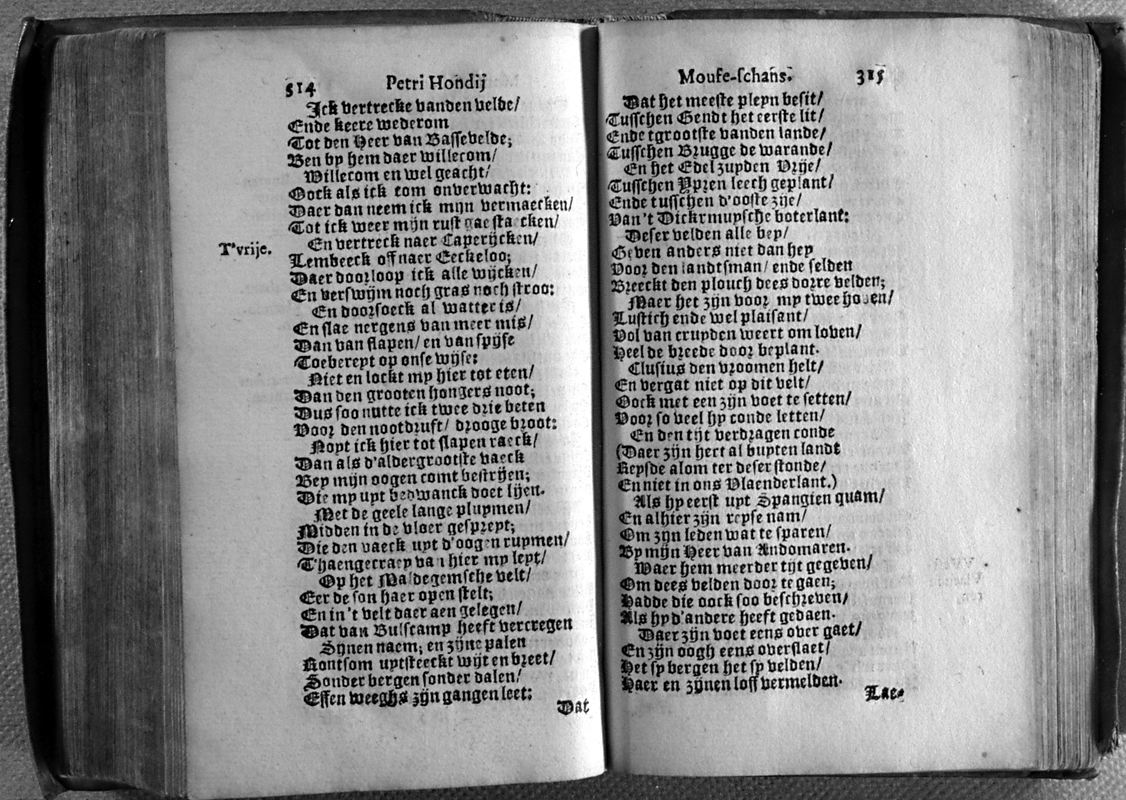 514 Petri Hondij
Ick vertrecke vanden velde/
Ende keere wederom
Tot den Heer van Bassevelde;
Ben by hem daer willecom/
Willecom en wel geacht/
Oock als ick com onverwacht:
Daer dan neem ick mijn vermaecken/
Tot ick weer mijn rust gae staecken/
T'vrije. En vertreck naer Caperijcken/
Lembeeck off naer Eeckeloo;
Daer doorloop ick alle wijcken/
En verswijm noch gras noch stroo:
En doorsoeck al watter is/
En slae nergens van meer mis/
Dan van slapen/ en van spijse
Toebereyt op onse wijse:
Niet en lockt my hier tot eten/
Dan den grooten hongers noot;
Dus soo nutte ick twee drie beten
Voor den nootdruft/ drooge broot:
Noyt ick hier tot slapen raeck/
Dan als d'aldergrootste vaeck
Bey mijn oogen comt bestrijen;
Die my uyt bedwanck doet lijen.
Met de geele lange pluymen/
Midden in de vloer gespreyt;
Die den vaeck uyt d'oogen ruymen/
T'haengecraey van hier my leyt/
Op het Maldegemsche velt/
Eer de son haer open stelt;
En in't velt daer aen gelegen/
Dat van Bulscamp heeft vercregen
Sijnen naem; en zijne palen
Rontsom uytsteeckt wijt en breet/
Sonder bergen sonder dalen/
Effen weeghs zijn gangen leet:
Dat
Mouse-schans. 315
Dat het meeste pleyn besit/
Tusschen Gendt het eerste lit/
Ende tgrootste vanden lande/
Tusschen Brugge de warande/
En het Edel zuyden Vrije/
Tusschen Ypren leech geplant/
Ende tusschen d'ooste zije/
Van't Dickmuysche boterlant:
Deser velden alle bey/
Geven anders niet dan hey
Voor den landtsman/ ende selden
Breeckt den plouch dees dorre velden;
Maer het zijn voor my twee hoven/
Lustich ende wel plaisant/
Vol van cruyden weert om loven/
Heel de breede door beplant.
Clusius den vroomen helt/
En vergat niet op dit velt/
Oock met een zijn voet te setten/
Voor so veel hy conde letten/
En den tijt verdragen conde
(Daer zijn hert al buyten landt
Reysde alom ter deser stonde/
En niet in ons Vlaenderlant.)
Als hy eerst uyt Spangien quam/
En alhier zijn reyse nam/
Om zijn leden wat te sparen/
By mijn Heer van Andomaren.
Waer hem meerder tijt gegeven/
Om dees velden door te gaen;
Hadde die oock soo beschreven/
Als hy d'andere heeft gedaen.
Daer zijn voet eens over gaet/
En zijn oogh eens overslaet/
Het sy bergen het sy velden/
Haer en zijnen loff vermelden.
Lae-